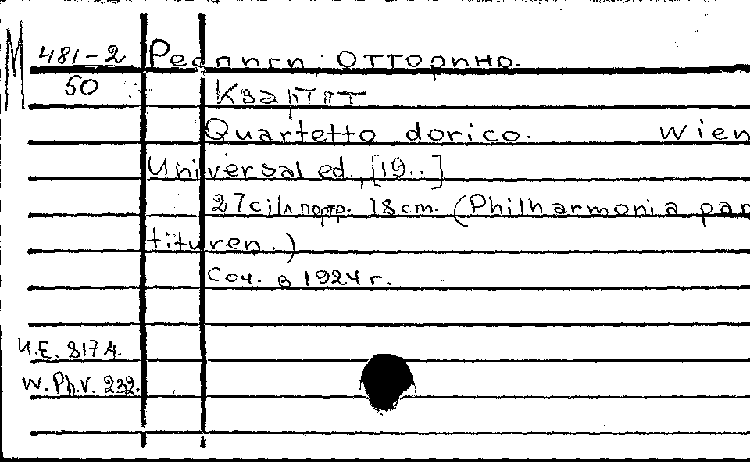 М
481-2 Респиги, Отторино.
50 Квартет
Quartetto dorico. Wien
Universal ed., [19..]
27с., 1 л. портр. 18 cm. (Philharmonia par
tituren.)
Соч. в 1924 г.
U.E. 8174.
W.Ph.V. 232.